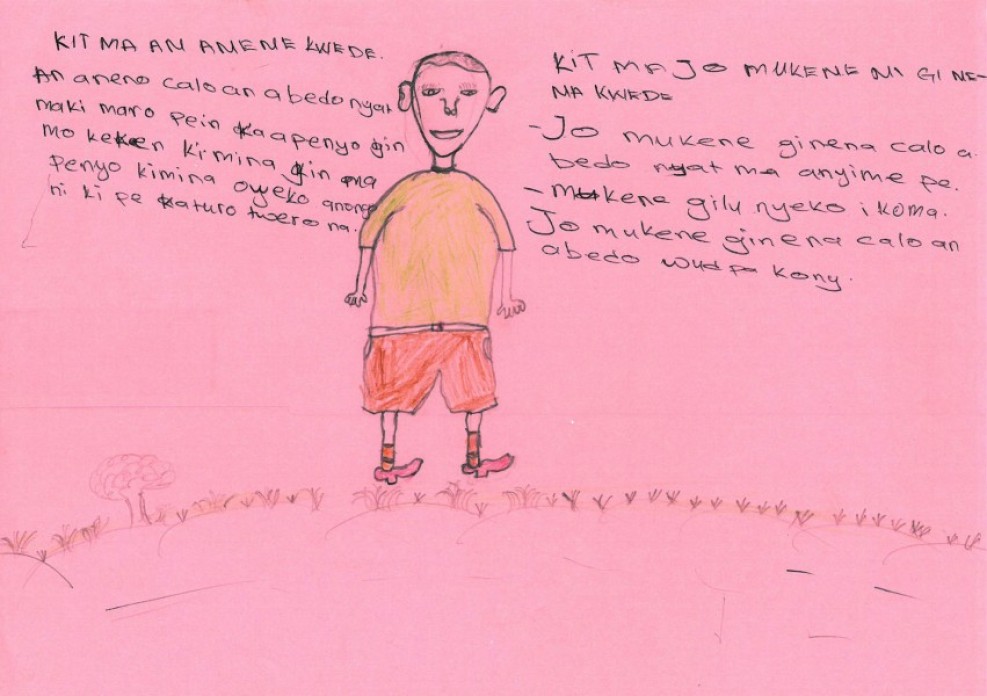 KIT MA AN ANENE KWEDE.
An aneno calo an abedo nyat
maki maro pein kaapenyo gin
mo keken kimina gin ma
penyo kimina oyeko anongo
ni ki pe katuro twero na.
KIT MA JO MUKENE NI GI NE-
NA KWEDE
- Jo mukene ginena calo a
bedo nyat ma anyime pe.
- mukene gilu nyeko i koma.
Jo mukene ginena calo an
abedo kony.